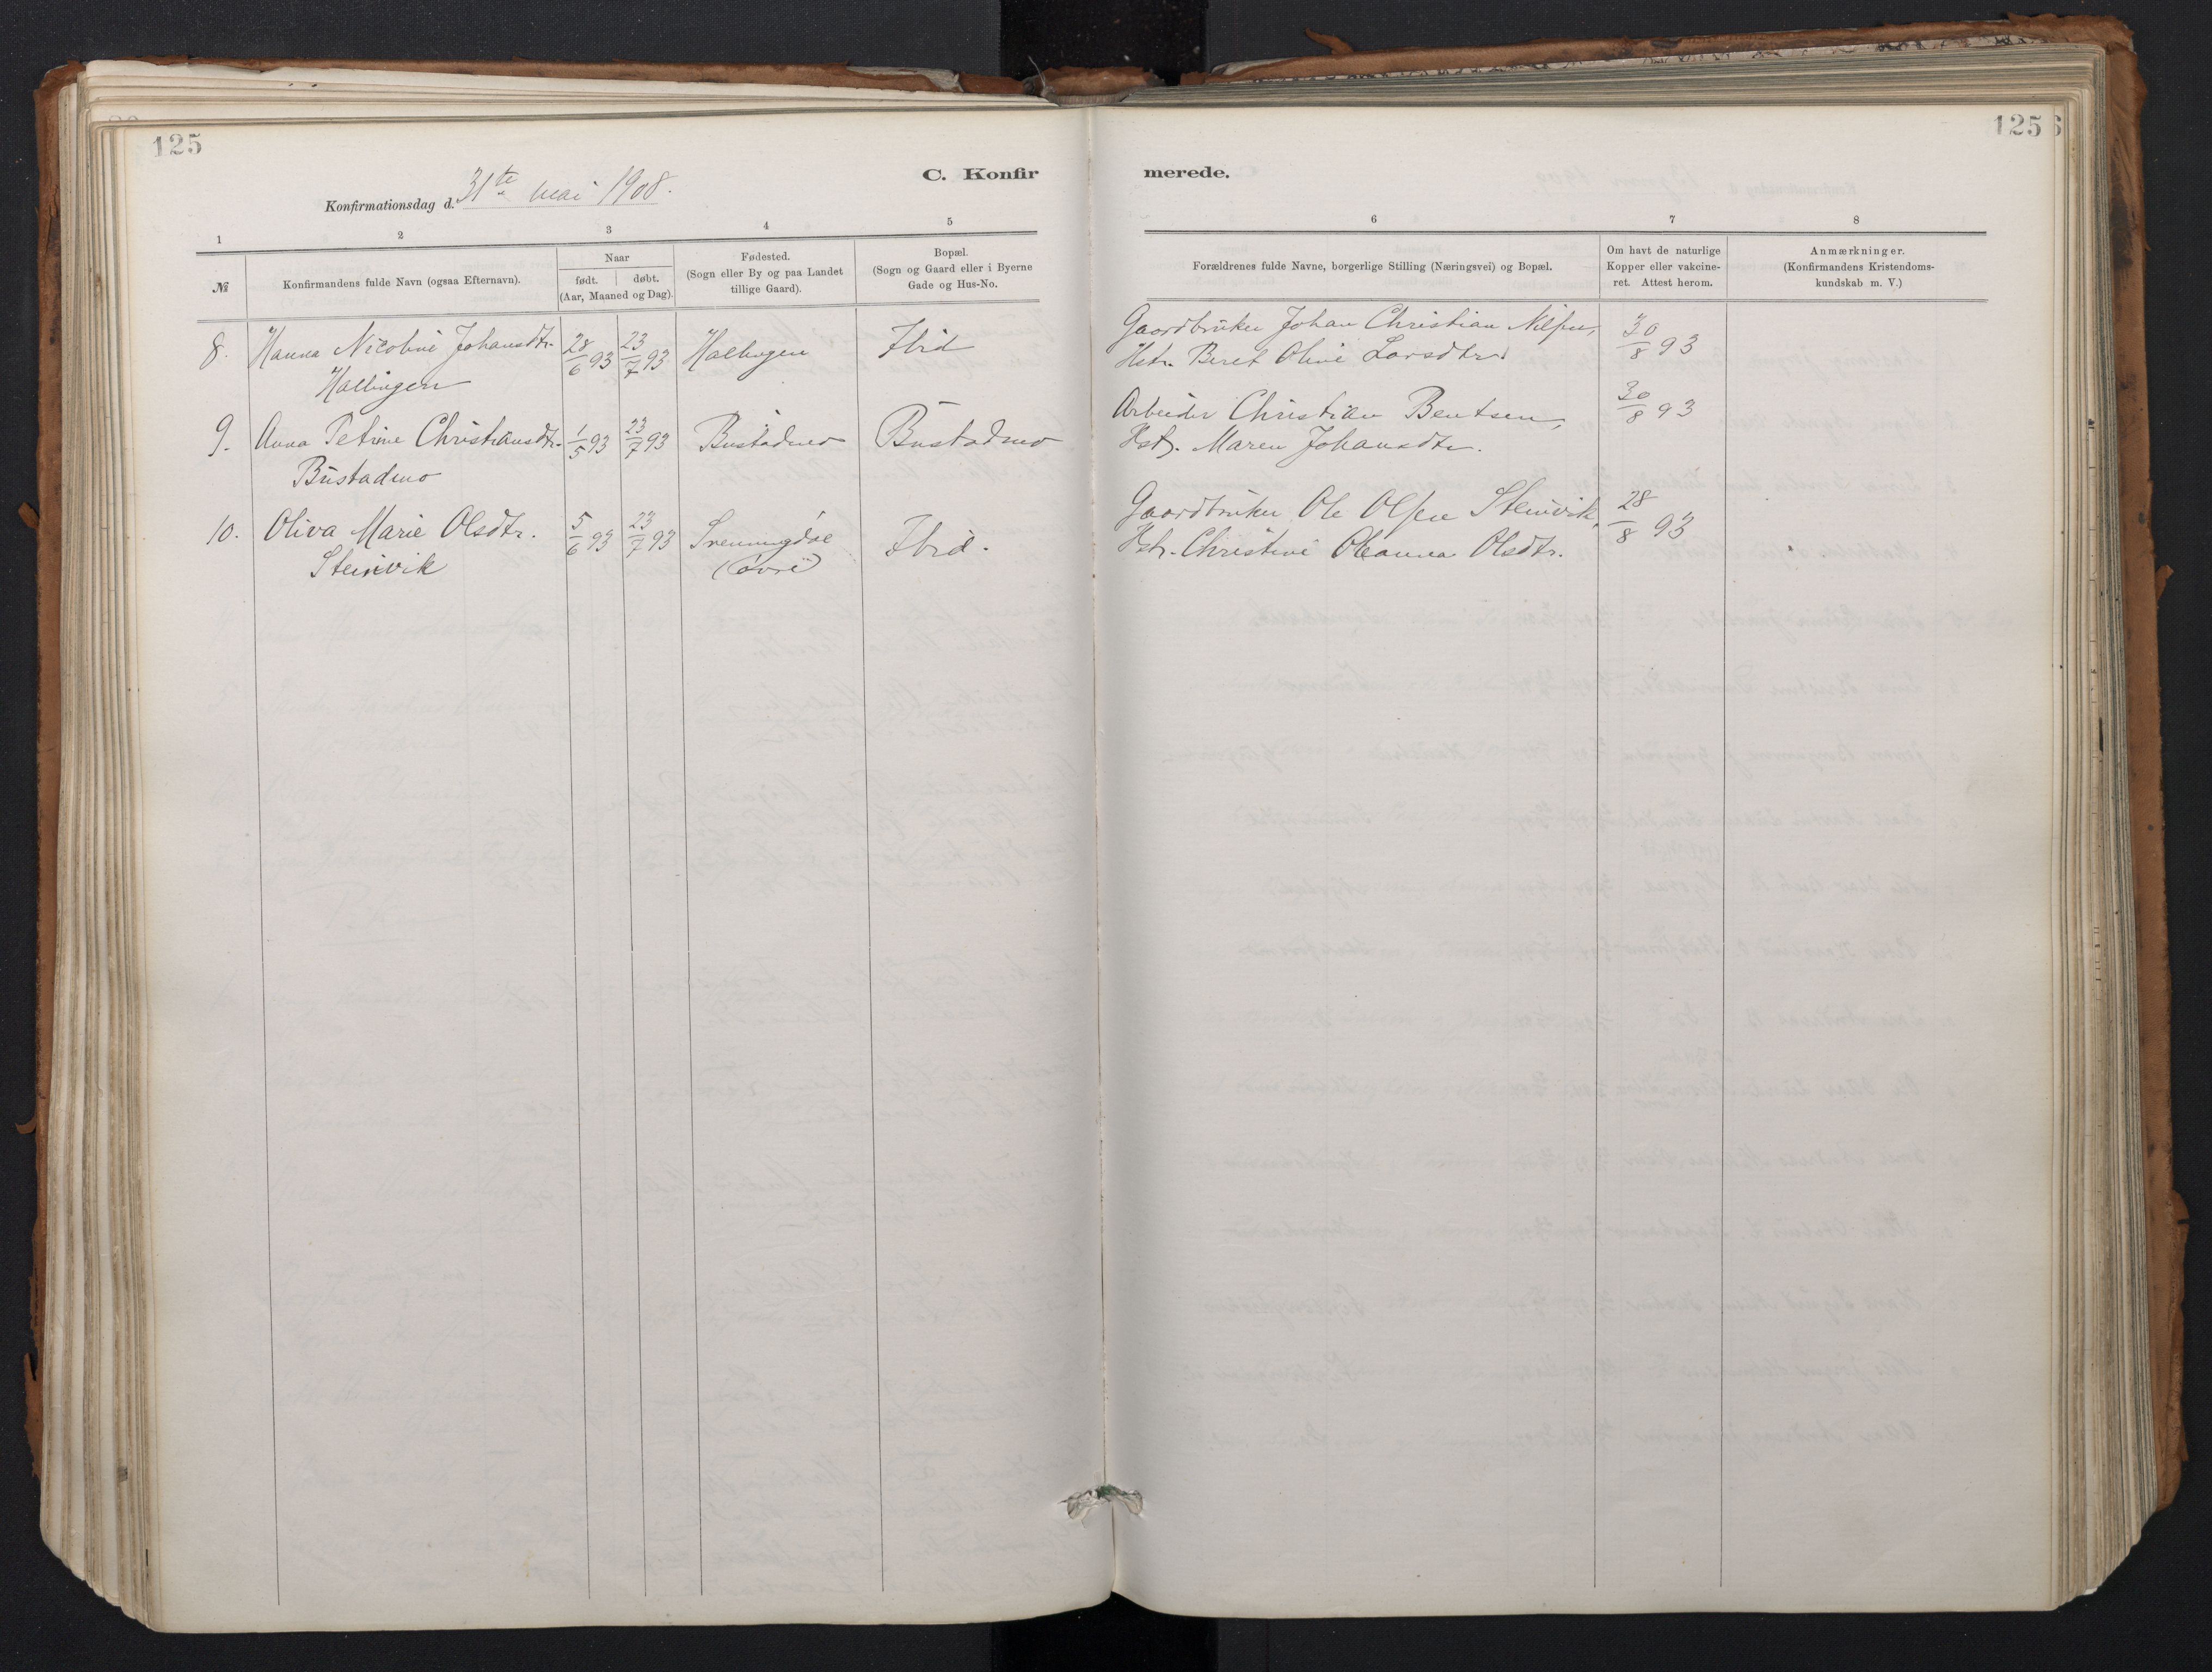 125
125
C. Konfir
merede.
Konfirmationsdag d. 31te mai 1908.
1
2
3
4
5
6
7
8
№
Konfirmandens fulde Navn (ogsaa Efternavn).
Naar
født. døbt.
(Aar, Maaned og Dag).
Fødested.
(Sogn eller By og paa Landet
tillige Gaard).
Bopæl.
(Sogn og Gaard eller i Byerne
Gade og Hus-No.
Forældrenes fulde Navne, borgerlige Stilling (Næringsvei) og Bopæl.
Om havt de naturlige
Kopper eller vakcine-
ret. Attest herom.
Anmærkninger.
(Konfirmandens Kristendoms-
kundskab m. V.)
8. Hanna Nicoline Johansdtr. 28/6 93 23/7 93 Hallingen Ibid Gaardbruker Johan Christian Nilsen, 30/8 93
Hallingen Hstr. Beret Oline Larsdtr.
9. Anna Petrine Christiansdtr. 1/5 93 23/7 93 Bustadmo Bustadmo Arbeider Christian Bentsen, 30/8 93
Bustadmo Hstr. Maren Johansdtr.
10. Oliva Marie Olsdtr. 5/6 93 23/7 93 Svenningdal Ibid. Gaardbruker Ole Olsen Steinvik, 28/8 93
Steinvik (øvre) Hstr. Christine Oleanna Olsdtr.